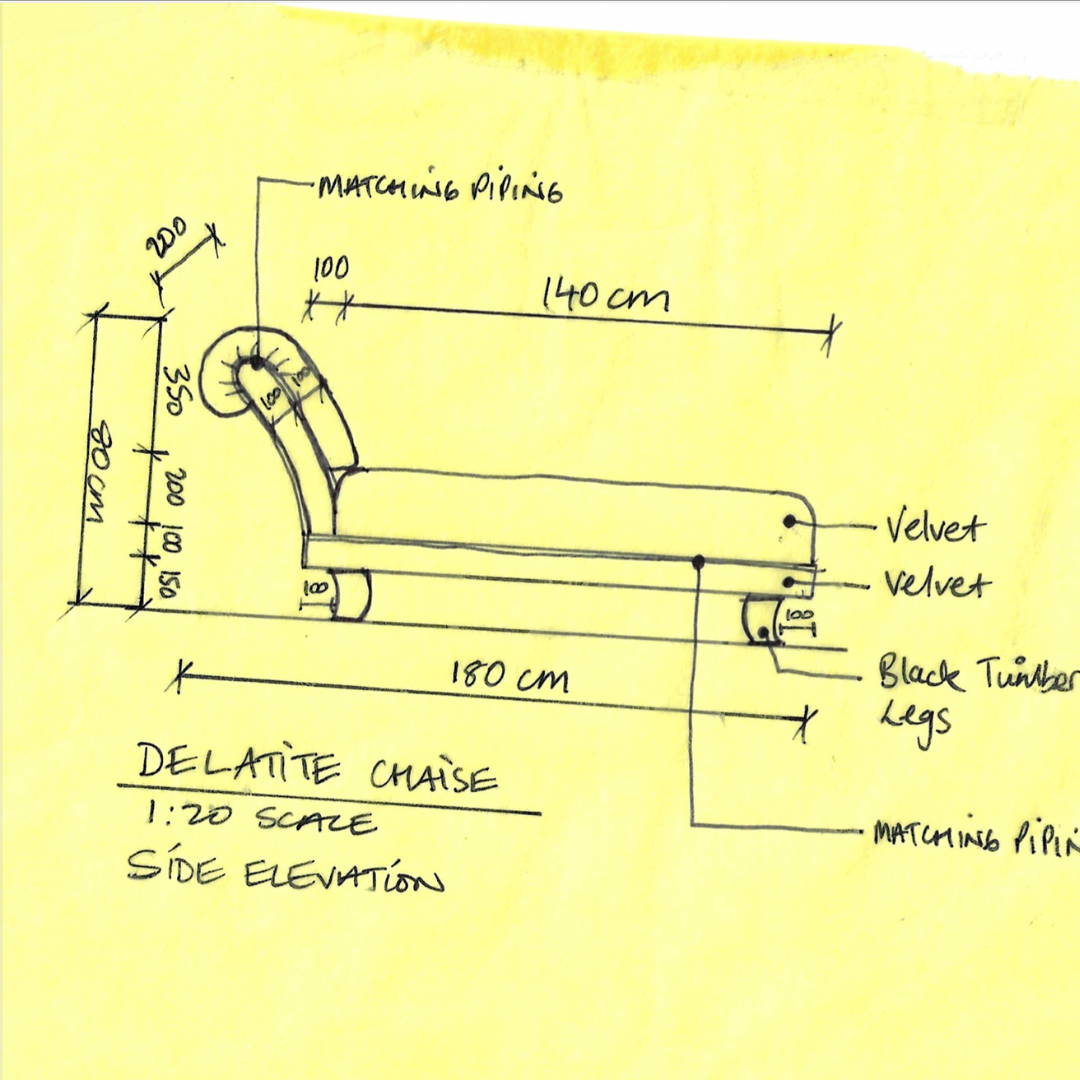 MATCHING PIPING
200
100
140 cm
350
100
100
80cm
200
100
150
Velvet
Velvet
100
Black Timber
Legs
180 cm
DELATITE CHAISE
1:20 SCALE
SIDE ELEVATION
MATCHING PIPIN